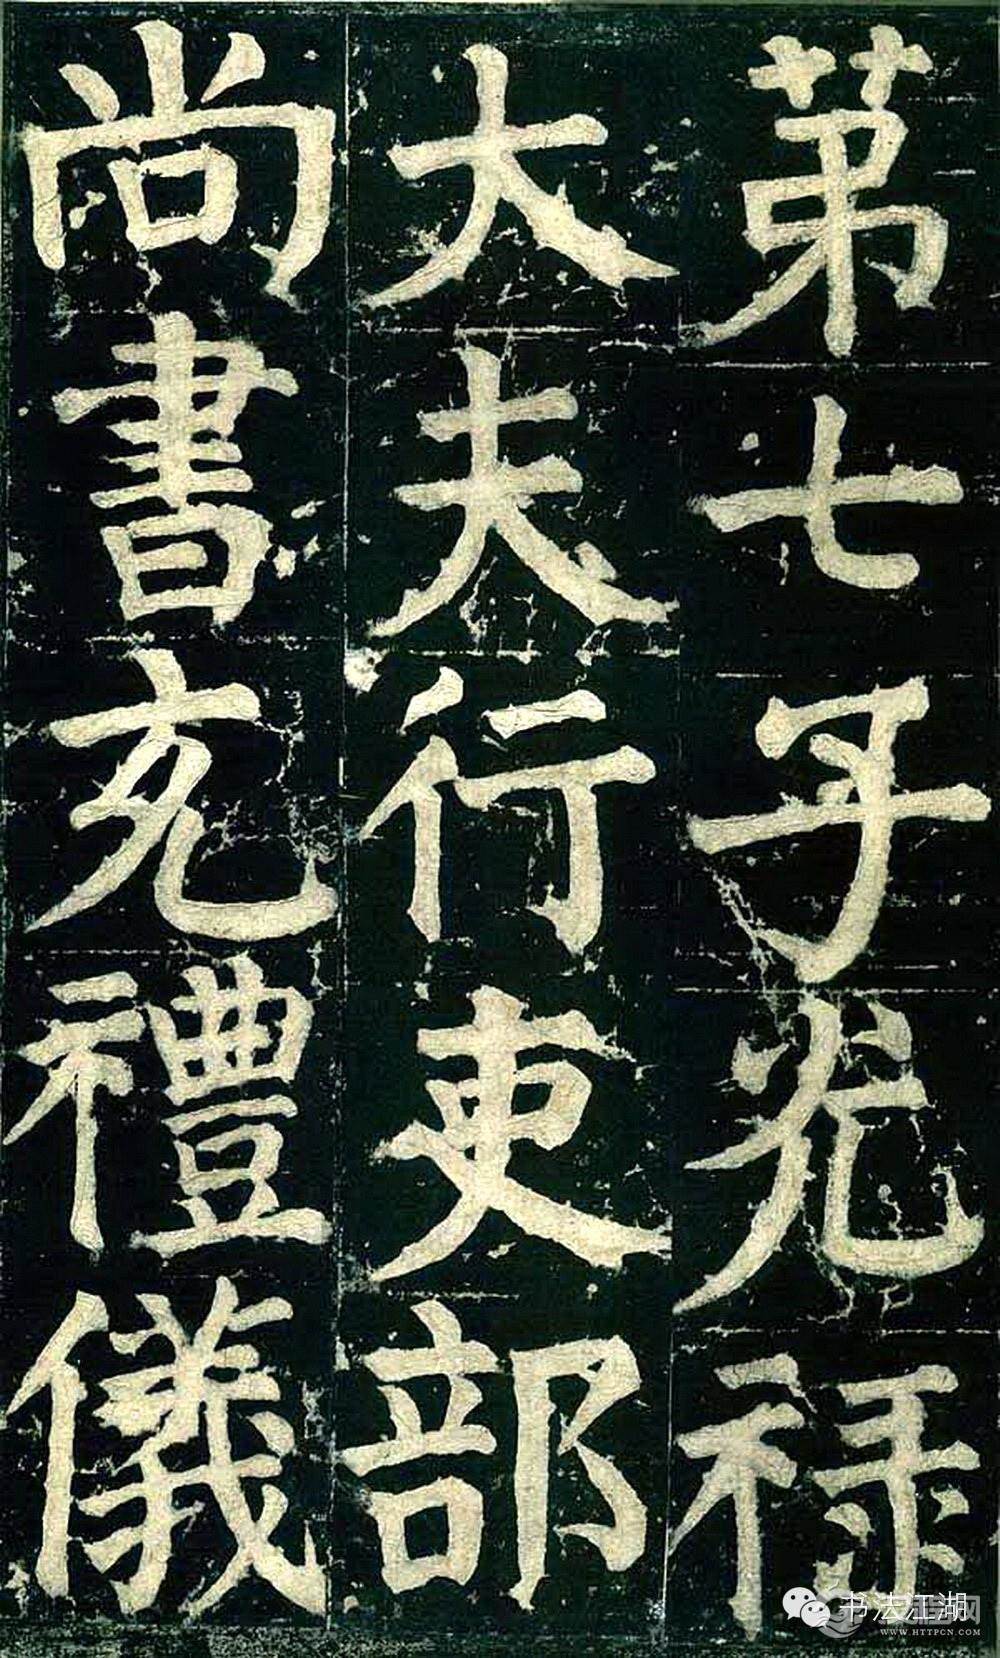 第七子光禄
大夫行吏部
尚書充禮儀
书法江湖
WWW.HTTPCN.COM